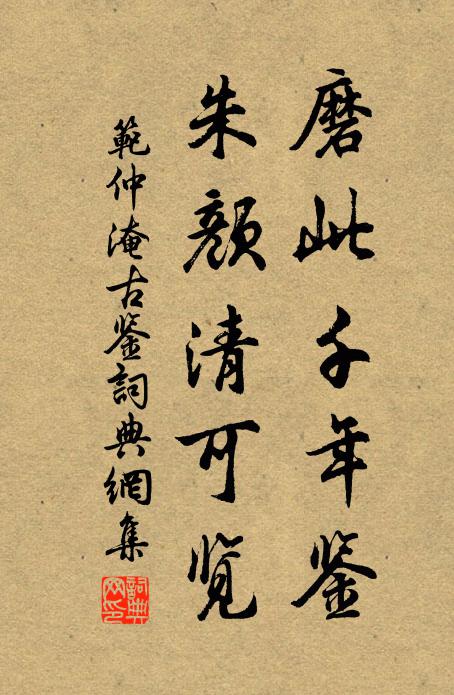 磨此千年鉴
朱颜清可览
範仲淹古鉴詞典網集
詞典网印